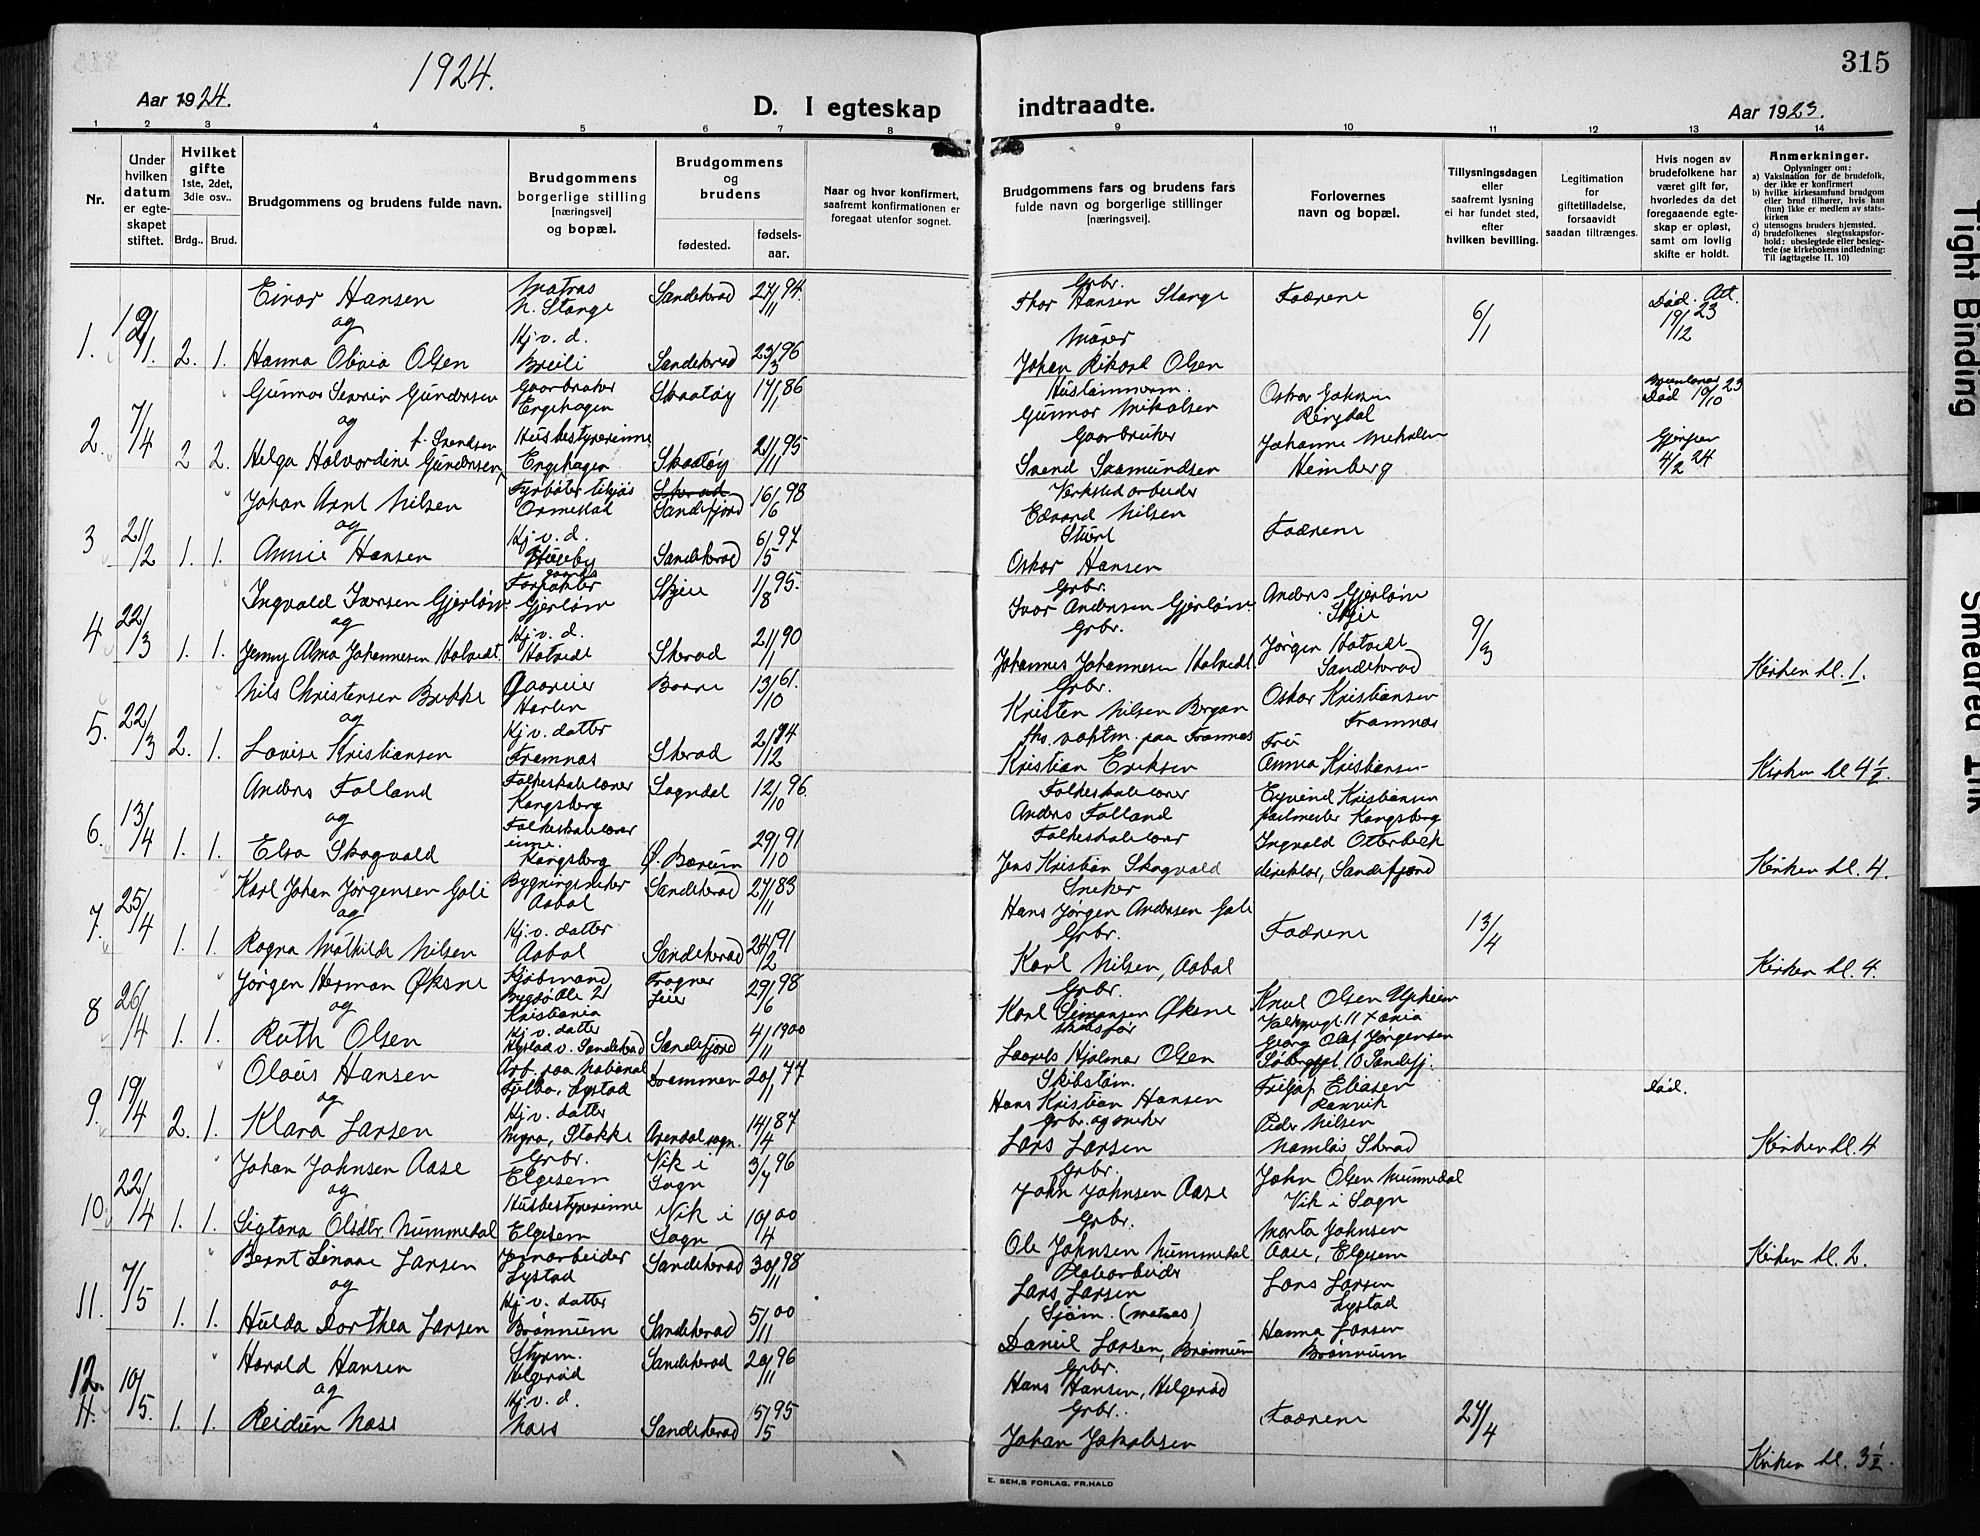 315
1924.
Aar 1924.
D. I egteskap indtraadte.
Aar 1923.
1 2 3 4 5 6 7 8 9 10 11 12 13 14
Nr.
Under
hvilken
datum
er egte-
skapet
stiftet.
Hvilket
gifte
1ste, 2det,
3die osv..
Brdg.. Brud.
Brudgommens og brudens fulde navn.
Brudgommens
borgerlige stilling
[næringsvei]
og bopæl.
Brudgommens
og
brudens
fødested.
fødsels-
aar.
Naar og hvor konfirmert,
saafremt konfirmationen er
foregaat utenfor sognet.
Brudgommens fars og brudens fars
fulde navn og borgerlige stillinger
[næringsvei].
Forlovernes
navn og bopæl.
Tillysningsdagen
eller
saafremt lysning
ei har fundet sted,
efter
hvilken bevilling.
Legitimation
for
giftetilladelse,
forsaavidt
saadan tiltrænges.
Hvis nogen av
brudefolkene har
været gift før,
hvorledes da det
foregaaende egte-
skap er opløst,
samt om lovlig
skifte er holdt.
Anmerkninger.
Oplysninger om:
a) Vaksination for de brudefolk,
der ikke er konfirmert
b) hvilke kirkesamfund brudgom
eller brud tilhører, hvis han
(hun) ikke er medlem av stats-
kirken
c) utensogns bruders hjemsted.
d) brudefolkenes slegtsskapsfor-
hold: ubeslegtede eller besleg-
tede (se kirkebokens indledning:
Til iagttagelse II. 10)
1. 2. 1.
Einar Hansen
og
Hanna Olivia Olsen
Matros
N. Stange
Hj. v. d.
Breili
Sandeherad 27/11 94.
Sandeherad 23/3 96
Grbr.
Thor Hansen Stange
Murer
Johan Rikard Olsen
Fædrene
6/1
Død. Att.
19/12 23
2. 7/4 2 2.
Gunnar Severin Gundersen
og
f. Svendsen
Helga Halvordine Gundersen
Gaardbruker
Engehagen
Husbestyrerinne
Engehagen
Skaatøy 17/1 86
Skaatøy 21/11 95
Husmann.
Gunnar Mikalsen
Gaardbruker
Svend Saamundsen
Oskar Johnsen
Ringdal
Johanne Mikalsen
Heimberg
Død 19/10 23
Gjerpen
4/2 24
3 21/2 1. 1.
Johan Arnt Nilsen
og
Annie Hansen
Fyrbøter tilsjøs
Ormestad
Hj. v. d.
Huseby
Skerad
Sandefjord 16/6 98
Sandeherad 6/5 97
Verkstedarbeider
Edvard Nilsen
Stuert
Oskar Hansen
Fædrene
4 22/3 1. 1.
Ingvald Iversen Gjerløw
og
Jenny Alma Johannesen Hotvedt
gaards
Forpakter
Gjerløw
Hj. v. d.
Hotvedt
Skjee 1/8 95.
Skerad 21/1 90
Grbr.
Ivar Andersen Gjerløw.
Grbr.
Johannes Johannesen Hotvedt
Anders Gjerløw
Skjee
Jørgen Hotvedt
Sandeherad
9/3
Kirken kl. 1.
5. 22/3 2. 1.
Nils Christensen Brekke
og
Lovise Kristiansen
Gaardeier
Haslen
Hj. v. datter
Framnæs
Borre 13/10 61.
Skerad 21/12 84
Grbr.
Kristen Nilsen Bergan
fhv. vaktm. paa Framnæs
Kristian Eriksen
Oskar Kristiansen
Framnæs
Fru
Anna Kristiansen
Kirken kl 4½
6. 13/4 1. 1.
Anders Folland
og
Elsa Skogvold
Folkeskolelærer
Kongsberg
Folkeskolelærer
inne.
Kongsberg
Sogndal 12/10 96
Ø. Bærum 29/10 91
Folkeskolelærer
Anders Folland
Folkeskolelærer
Jens Kristian Skogvold
Eyvind Kristiansen
Kongsberg
Ingvald Otterbech
direktør, Sandefjord
Kirken kl. 4.
7. 25/4 1. 1.
Karl Johan Jørgensen Goli
og
Ragna Mathilde Nilsen
Bygningssneker
Aabol
Hj. v. datter
Aabol
Sandeherad 27/11 83
Sandeherad 24/2 91
Sneker
Hans Jørgen Andersen Goli
Grbr.
Karl Nilsen, Aabol
Fædrene
13/4
Kirken kl. 4.
8 26/4 1. 1.
Jørgen Herman Øksne
og
Ruth Olsen
Kjøbmand
Bygdø Alle 21
Kristiania
Hj. v. datter
v. Sandeherad
Frogner
Leier 29/6 98
Sandefjord 4/11 1900
Grbr.
Karl Simensen Øksne
Laurits Hjalmar Olsen
Knut Olsen Upheim
Georg Olaf Jørgensen
10 Sandefj.
9. 19/4 2. 1.
Olaus Hansen
og
Klara Larsen
Arb. paa National
Lystad
Hj. v. datter
Myra, Stokke
Drammen 20/11 77
Arendal sogn. 14/4 87
Skibstøm.
Hans Kristian Hansen
Grbr. og sneker
Lars Larsen
Fritjof Eliasen
Ranvik
Peder Nilsen
Namløs, Skerad
Død.
Kirken kl. 4
10 22/4 1. 1.
Johan Johnsen Aase
og
Sigtona Olsdtr. Nummedal
Grbr.
Elgesem
Husbestyrerinne
Elgesem
Vik i
Sogn 3/7 96
Vik i
Sogn 10/4 00
Grbr.
John Johnsen Aase
Grbr.
Ole Johnsen Nummedal
John Olsen Nummedal
Vik i Sogn
Marta Johnsen
Aase, Elgesem
Kirken kl. 2.
11. 7/5 1. 1.
Bernt Einar Larsen
og
Hulda Dorthea Larsen
Jernarbeider
Lystad
Hj. v. datter
Brønnum
Sandeherad 30/11 98
Sandeherad 5/11 00
Platearbeider
Lars Larsen
Sjøm. (matros)
Daniel Larsen, Brønnum
Lars Larsen
Lystad
Hanna Larsen
Brønnum
12. 10/5. 1. 1.
Harald Hansen
og
Reidun Næss
Styrm.
Helgerød
Hj. v. d.
Næss
Sandeherad 20/11 96
Sandeherad 5/5 95
Grbr.
Hans Hansen, Helgerød
Grbr.
Johan Jakobsen
Fædrene
24/4
Kirken kl. 3½.
E. SEM.S FORLAG, FR.HALD
Tight Binding
Smeared Ink